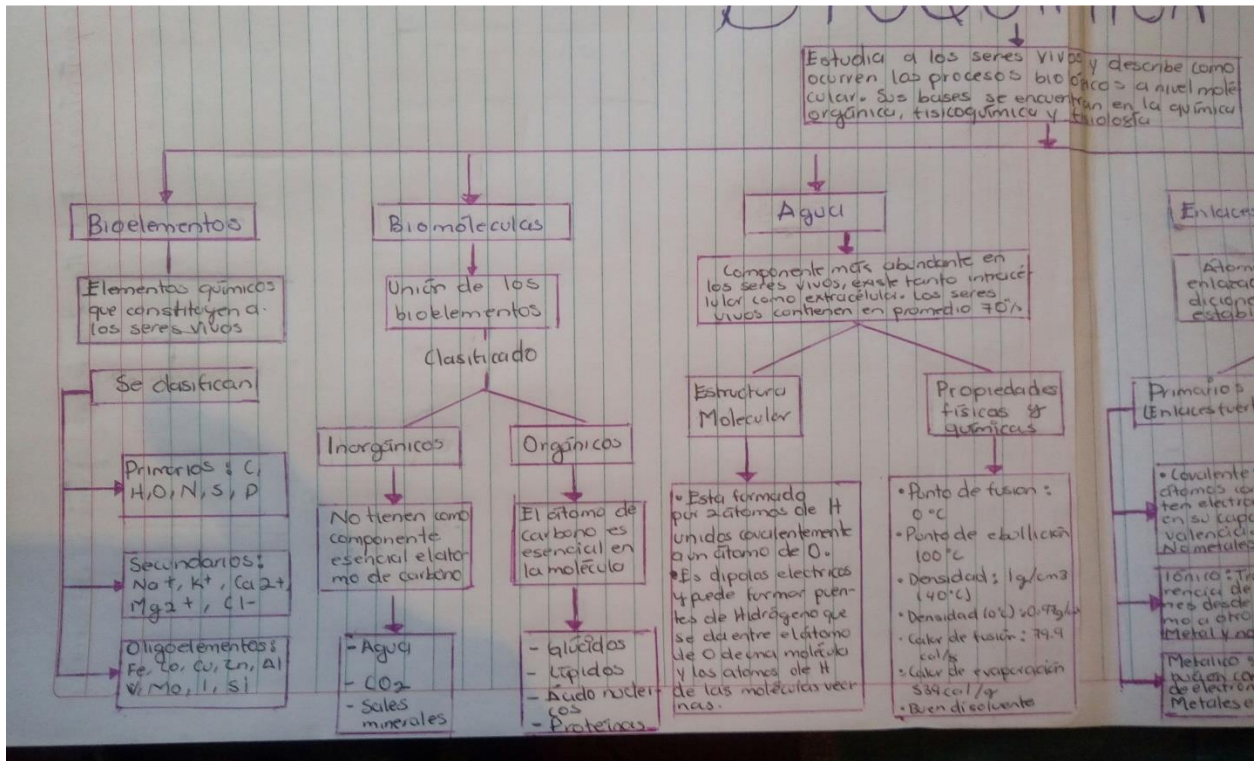 Estudia a los seres vivos y describe como
ocurren los procesos biológicos a nivel molé
cular. Sus bases se encuentran en la química
orgánica, fisicoquímica y fisiología
Bioelementos
Elementos químicos
que constituyen a
los seres vivos
Se clasifican
Primarios: C,
H, O, N, S, P
Secundarios:
Na+, K+, Ca2+,
Mg2+, Cl-
Oligoelementos:
Fe, Co, Cu, Zn, Al
V, Mo, I, Si
Biomoléculas
Unión de los
bioelementos
Clasificado
Inorgánicos
No tienen como
componente
esencial el áto
mo de carbono
- Agua
- CO2
- Sales
minerales
Orgánicos
El átomo de
carbono es
esencial en
la molécula
- Glúcidos
- Lípidos
- Ácido nuclei
cos
- Proteínas
Agua
Componente más abundante en
los seres vivos, existe tanto intracé
lular como extracélular. Los seres
vivos contienen en promedio 70%
Estructura
Molecular
• Esta formado
por 2 átomos de H
unidos covalentemente
a un átomo de O.
• Es dipolos electricos
y puede formar puen
tes de Hidrógeno que
se da entre el átomo
de O de una molécula
y los atomos de H
de las moléculas veci
nas.
Propiedades
físicas y
químicas
• Punto de fusion:
0°C
• Punto de ebullición
100°C
• Densidad: 1g/cm3
(40°C)
• Densidad (0°c):
• Calor de fusión: 79.9
cal/g
• Calor de evaporación
539 cal/g
• Buen disolvente
Enlaces
Atom
enlazad
diciona
establ
Primarios
(Enlaces fuer
• Covalente
átomos co
ten electro
en su cap
valencia.
No metales
Iónico: T
rencia de
nes desde
mo a otro
Metal y no
Metalico:
de electron
Metales e